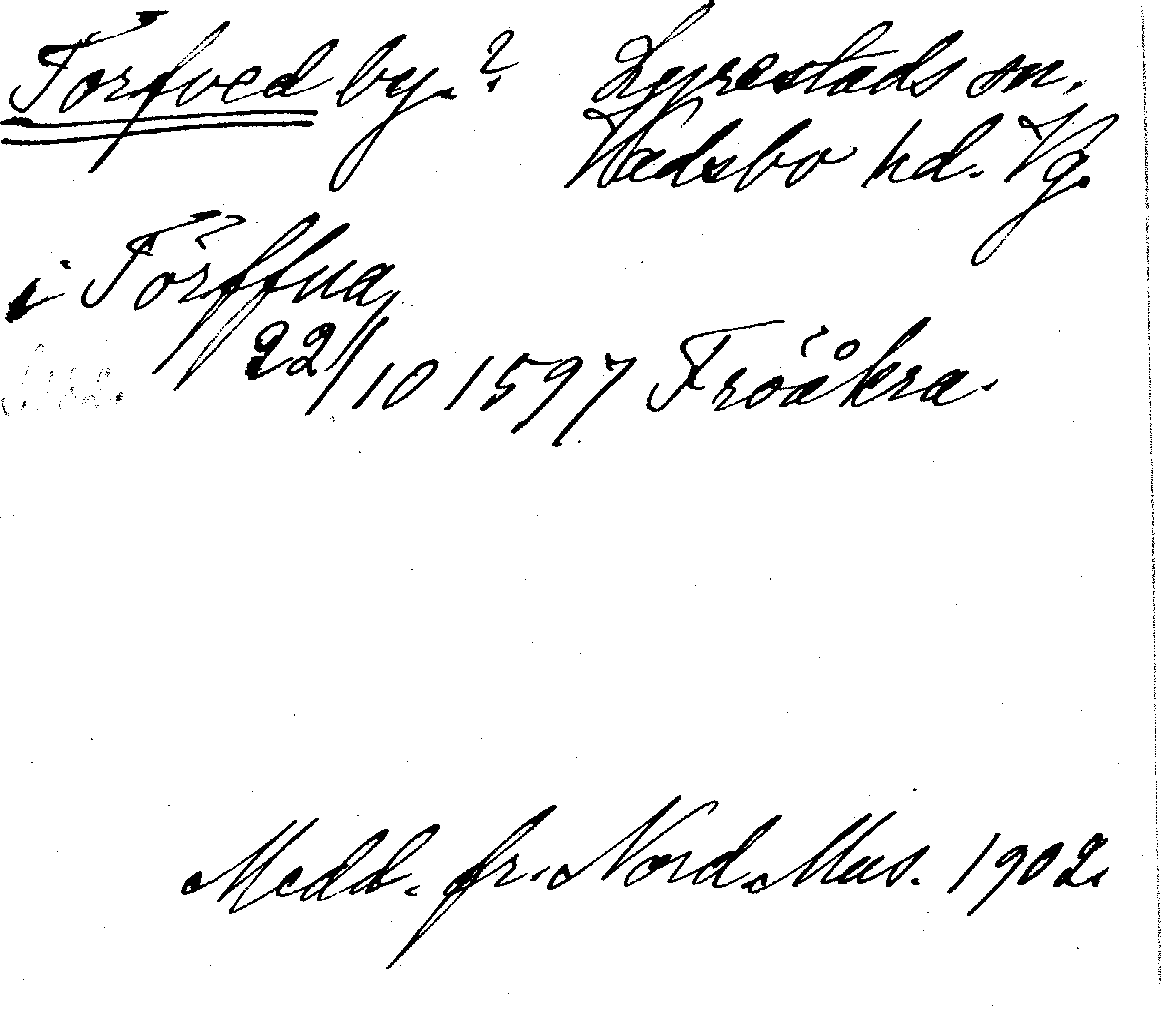 Torfved by.? Lyrestads sn.
Wadsbo hd. Vg.
i Törffua
22/10 1597 Fröåkra.
Medd. fr. Nord. Mus. 1902.